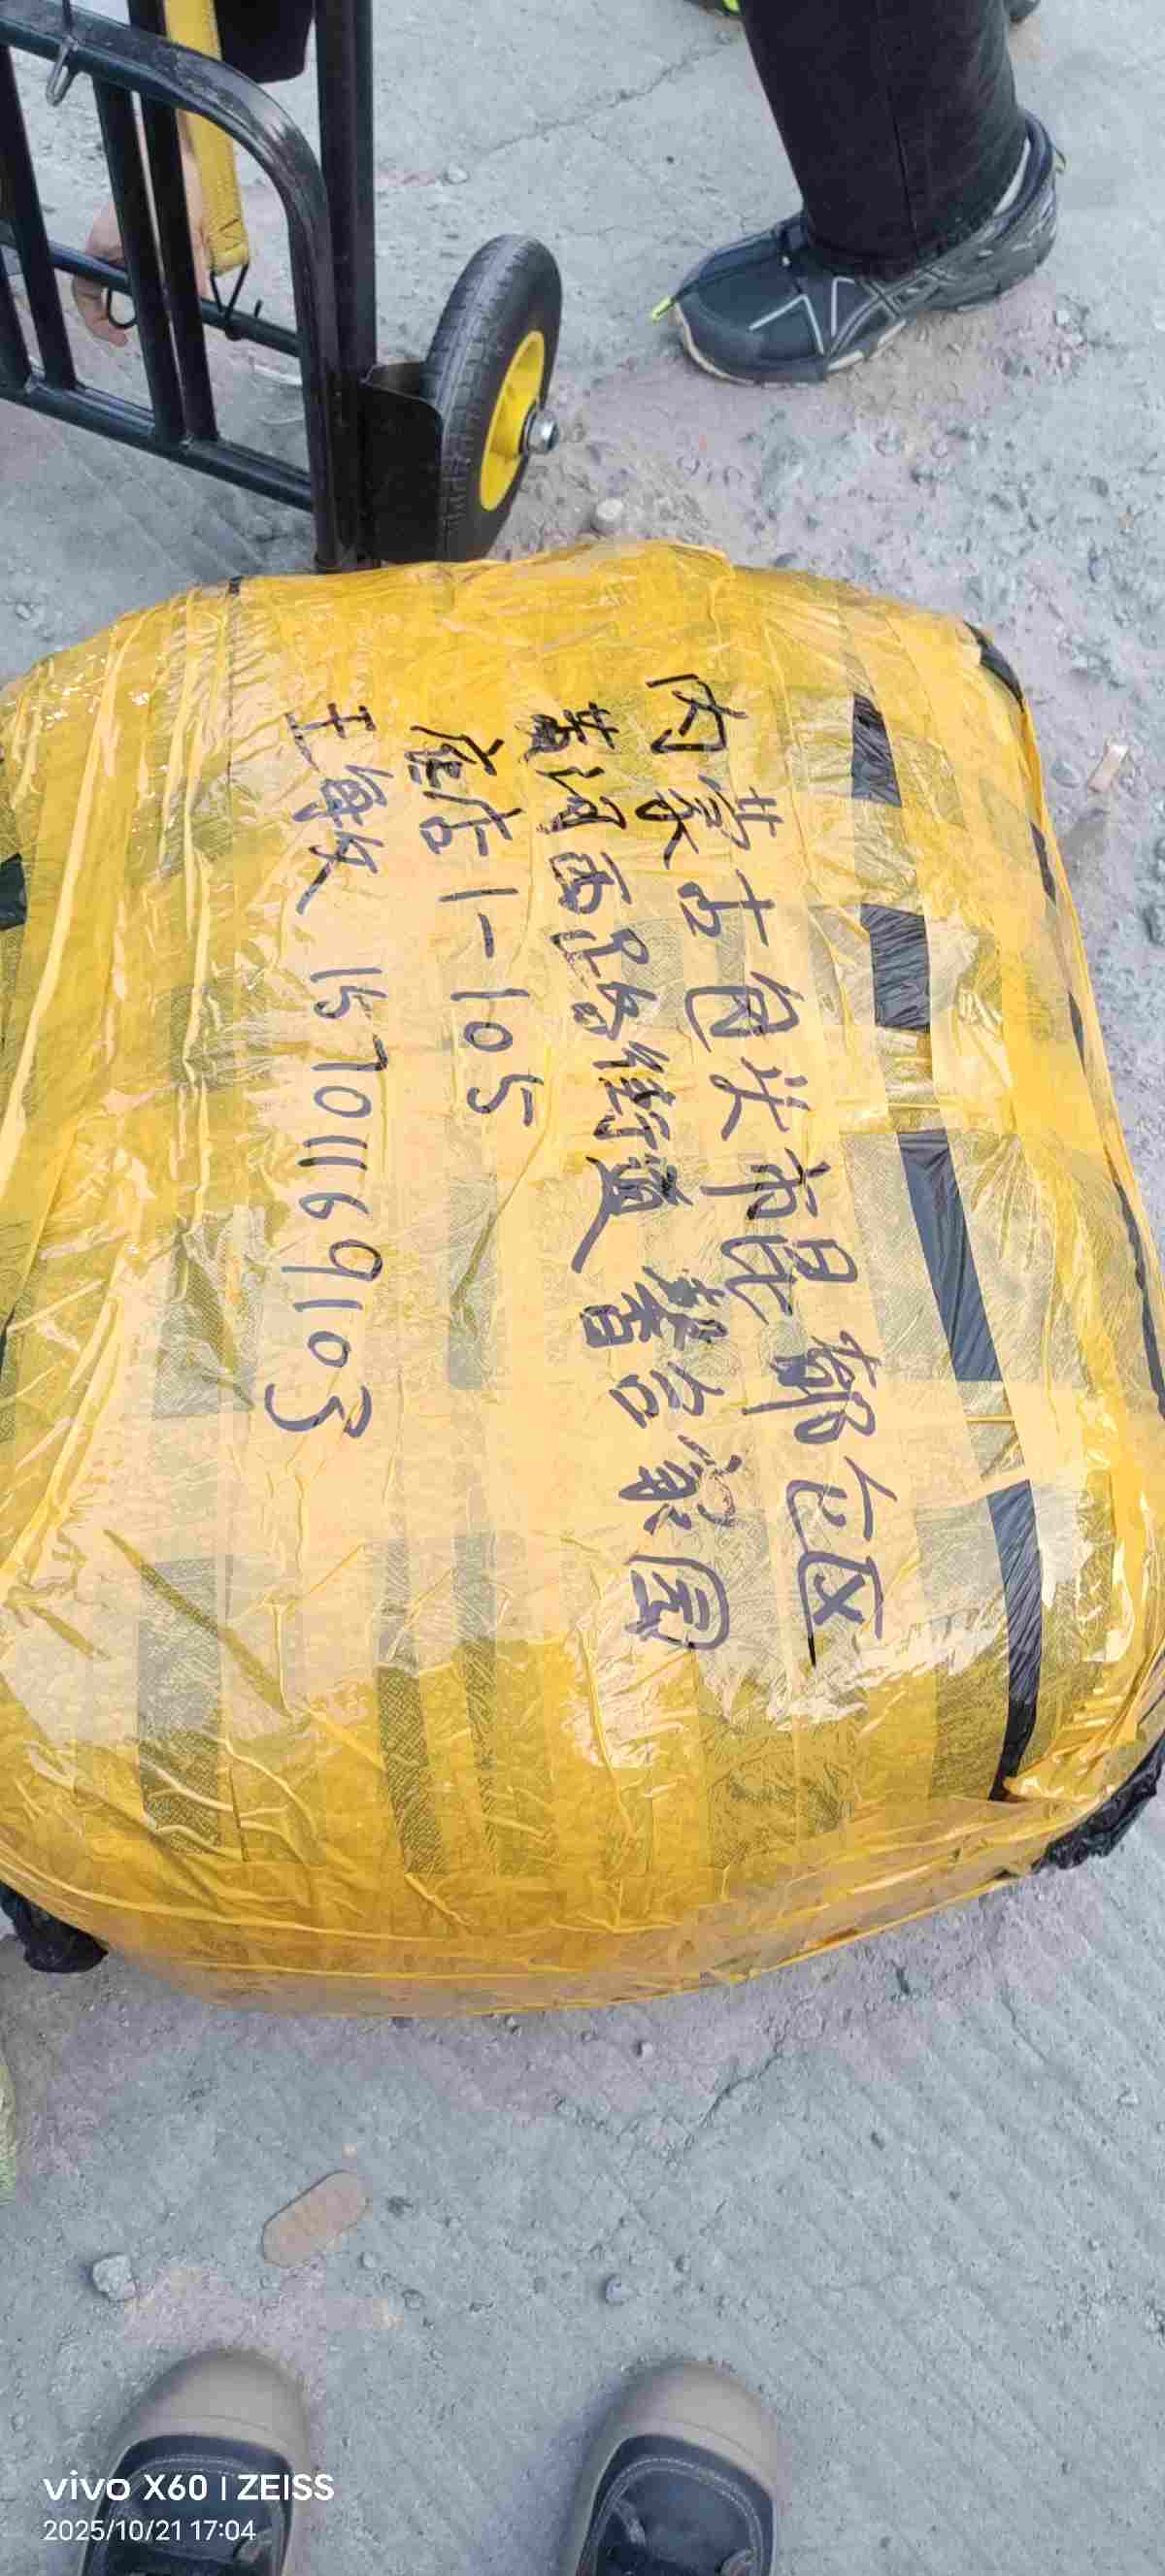 内蒙古包头市昆都仑区
黄河西路街道馨合家园
底店1-105
王敏 15701169103
vivo X60 | ZEISS
2025/10/21 17:04